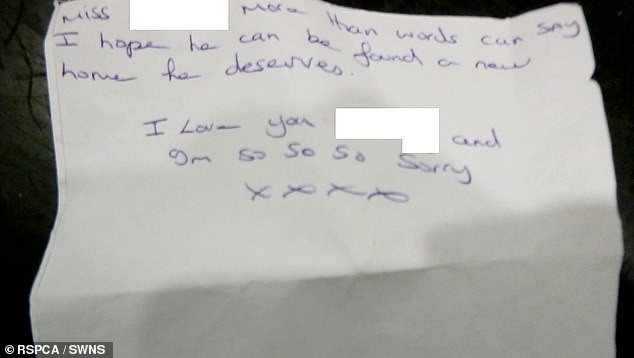 Miss More than words can say
I hope he can be found a new
home he deserves.
I Love you and
I'm so so so sorry
x x x x
© RSPCA / SWNS